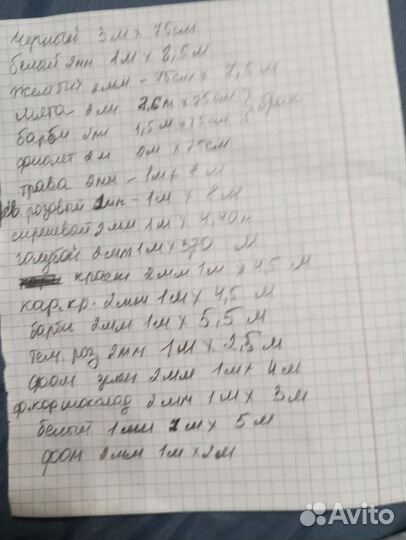 Черный 3 м х 75см
белой 2мм 1м х 8,5м
желтый 2мм - 75см х 7,5 м
мята 2мм 2,6м х 75см } брак
барби 2мм 1,5м х 75см
фиолет 2м м х 75см
трава 2мм - 1м х м
розовой 2мм - 1м х 8м
сиреневой 2мм 1м х 4,40м
голубой 2мм 1м х 3,70 м
красн 2мм 1м х 4,5 м
кар. кр. 2мм 1м х 4,5 м
барби 2мм 1м х 5,5 м
тем. роз 2мм 1м х 2,5 м
фоам 2мм 1м х 4м
ф. кор шоколад 2мм 1м х 3м
белый 1мм м х 5м
фон 2мм 1м х 2м
Avito